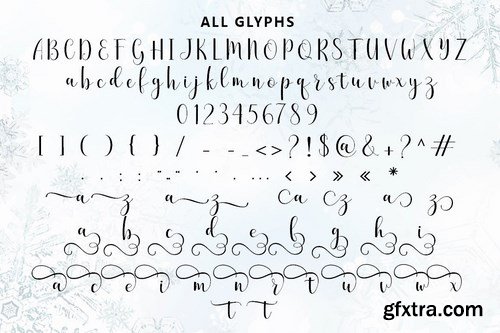 ALL GLYPHS
ABCDEFGHIJKLMNOPQRSTUVWXYZ
abcdefghijklmnopqrstuvwxyz
0123456789
[ ] ( ) { } / - – _ < > ? ! $ @ & + ? ^ #
. , : ; " " ' ' . … ‹ › » « *
a z a z a z a z
a b c d e f g h i
a c e i m n r t u v w x
t t
gfxtra.com